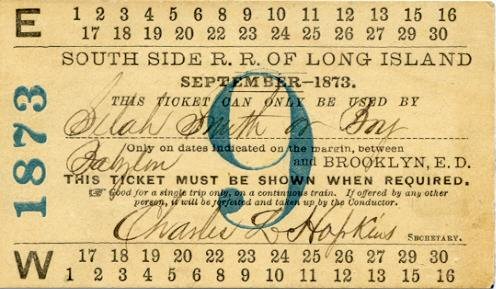 E 1 2 3 4 5 6 7 8 9 10 11 12 13 14 15 16
17 18 19 20 21 22 23 24 25 26 27 28 29 30
SOUTH SIDE R. R. OF LONG ISLAND
SEPTEMBER–1873.
THIS TICKET CAN ONLY BE USED BY
Selah Smith or Boy
Only on dates indicated on the margin, between
Babylon and BROOKLYN, E. D.
THIS TICKET MUST BE SHOWN WHEN REQUIRED.
☞ Good for a single trip only, on a continuous train. If offered by any other
person, it will be forfeited and taken up by the Conductor.
Charles L Hopkins SECRETARY.
W 17 18 19 20 21 22 23 24 25 26 27 28 29 30
1 2 3 4 5 6 7 8 9 10 11 12 13 14 15 16
1873
9